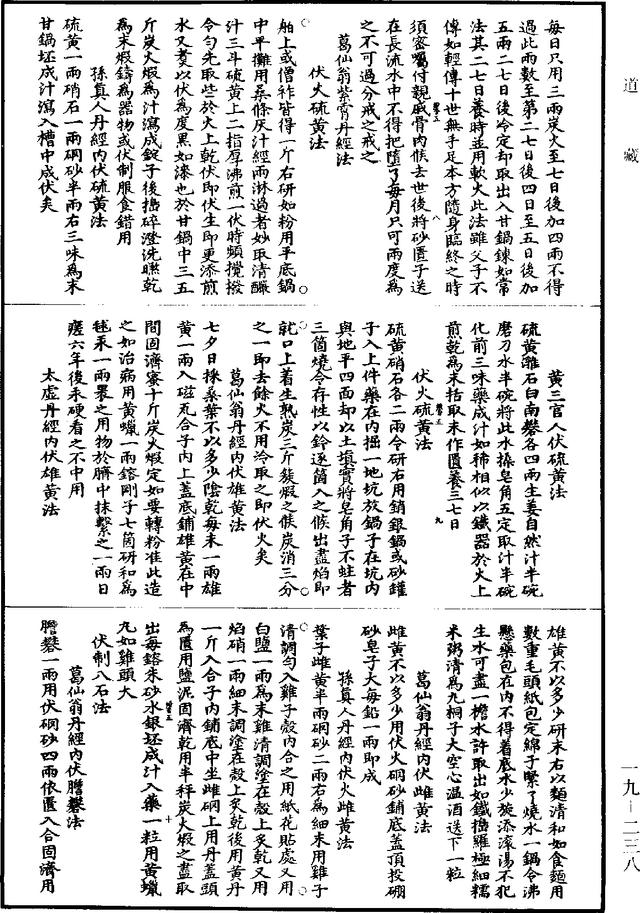 道藏
每日只用三兩炭火至七日後加四兩不得
過此兩數至第二七日後四日至五日後加
五兩二七日後冷定却取出入甘鍋鍊如常
法其二七日養時並用軟火此法雖父子不
傳如輕傳十世無手足本方隨身臨終之時
須密囑付親戚骨肉候去世後將砂匱子送
在長流水中不得把墮了每月只可兩度為
之不可過分戒之戒之
葛仙翁紫霄丹經法
伏火硫黄法
舶上或僧袢皆得一斤右研如粉用平底鍋
中平攤用桑條灰汁經兩淋過者妙取清釅
汁三斗硫黄上二指厚沸煎一伏時頻攪撥
令勻先取些於火上乾伏即伏生即更添煎
水又煑以伏為度黑如漆也於甘鍋中三五
斤炭火煅為汁瀉成錠子後擣碎澄洗曬乾
為末煅鑄為器物或伏制服食錯用
孫真人丹經內伏硫黄法
硫黄一兩硝石一兩硇砂半兩右三味為末
甘鍋坯成汁瀉入槽中成伏矣
黄三官人伏硫黄法
硫黄滑石白南礬各四兩生姜自然汁半碗
磨刀水半碗將此水搡皂角五定取汁半碗
化前三味藥成汁如稀相似以鐵器於火上
煎乾為末括取末作匱養三七日
伏火硫黄法
硫黄硝石各二兩令研右用銷銀鍋或砂鑵
子入上件藥在內掘一地坑放鍋子在坑內
與地平四面却以土填實將皂角子不蛀者
三箇燒令存性以鈴逐箇入之候出盡焰即
就口上着生熟炭三斤簇煅之候炭消三分
之一即去餘火不用冷取之即伏火矣
葛仙翁丹經內伏雄黄法
七夕日採桑葉不以多少陰乾每末一兩雄
黄一兩入磁瓦合子內上蓋底鋪雄黄在中
間固濟蜜十斤炭火煅定如要轉粉准此造
之如治病用黄蠟一兩鎔剛子七箇研和為
毬汞一兩裹之用物於臍中抹繫之一兩日
瘥六年後汞硬看之不中用
太虚丹經內伏雄黄法
雄黄不以多少研末右以麵清和如食麵用
數重毛頭紙包定綿子緊了燒水一鍋令沸
懸藥包在內不得着底水少旋添滾湯不犯
生水可盡一檐水許取出如鐵擣羅極細糯
米粥清為丸桐子大空心溫酒送下一粒
葛仙翁丹經內伏雌黄法
雌黄不以多少用伏火硇砂鋪底蓋頂投硼
砂皂子大每鉛一兩即成
孫真人丹經內伏火雌黄法
葉子雌黄半兩硇砂二兩右為細末用雞子
清調勻入雞子殼內合之用紙花貼處又用
白鹽一兩為末雞清調塗在殼上炙乾又用
焰硝一兩細末調塗在殼上炙乾後用黄丹
一斤入合子內鋪底中坐雌硇上用丹蓋頭
為匱用鹽泥固濟乾用半秤炭火煅之盡取
出每鎔朱砂水銀坯成汁入藥一粒用黄蠟
丸如雞頭大
伏制八石法
葛仙翁丹經內伏膽礬法
膽礬一兩用伏硇砂四兩依匱入合固濟用
一九—二三八